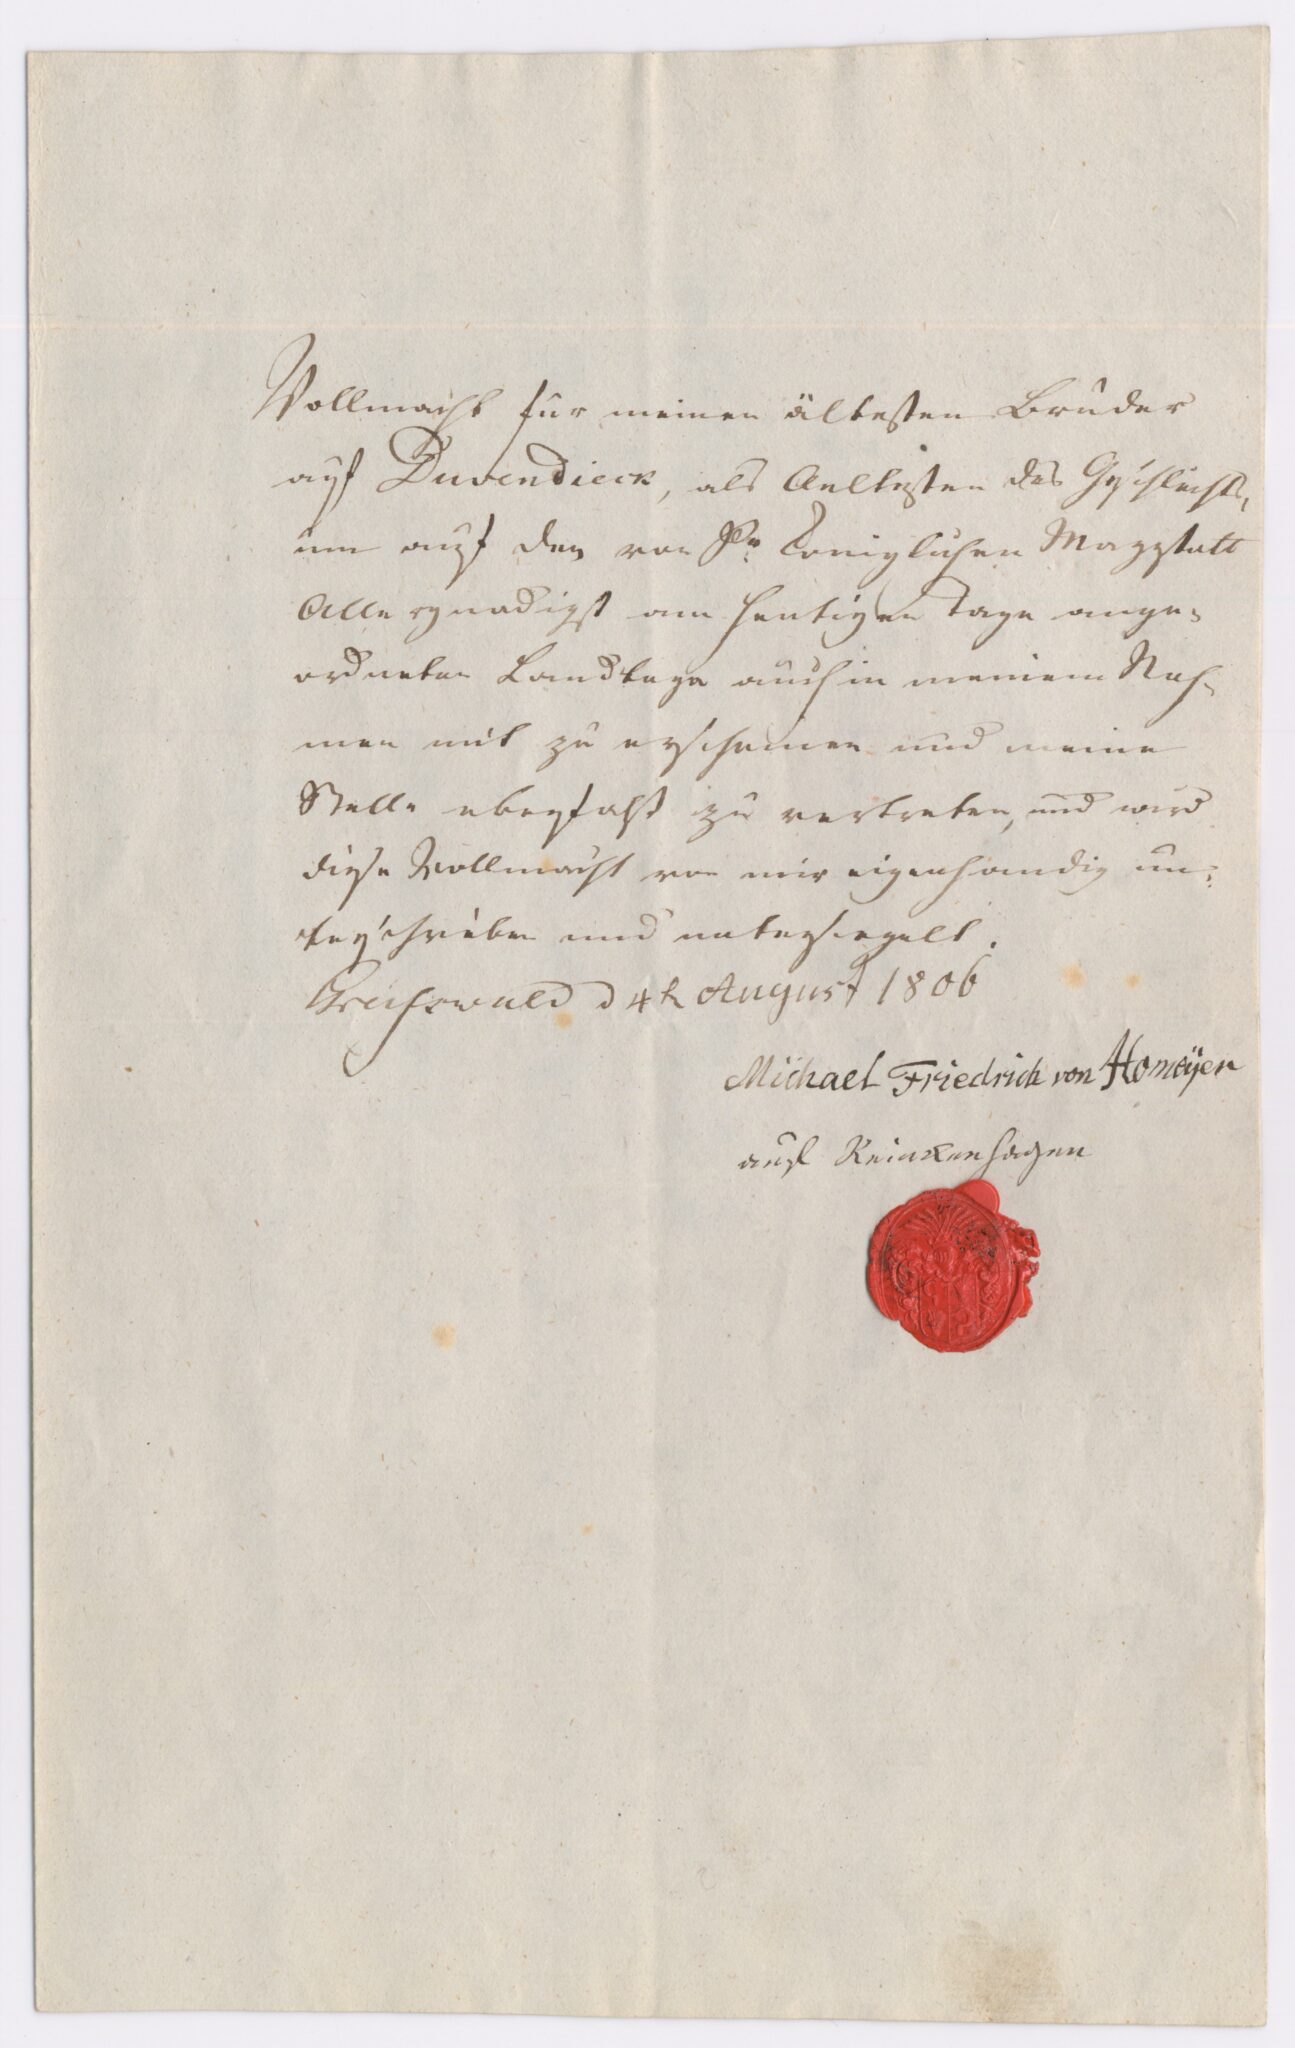 Vollmacht für meinen ältesten Bruder
auf Duvendieck, als Aeltesten des Geschlechts,
um auf den von Sr Königlichen Mayestätt
Allergnädigst am heutigen Tage ange-
ordneten Landtage auch in meinem Nah-
men mit zu erscheinen und meine
Stelle ebenfalß zu vertreten, und wird
diese Vollmacht von mir eigenhändig un-
terschrieben und untersiegelt.
Greifswald d 4t August 1806
Michael Friedrich von Homeÿer
auf Reinkenhagen